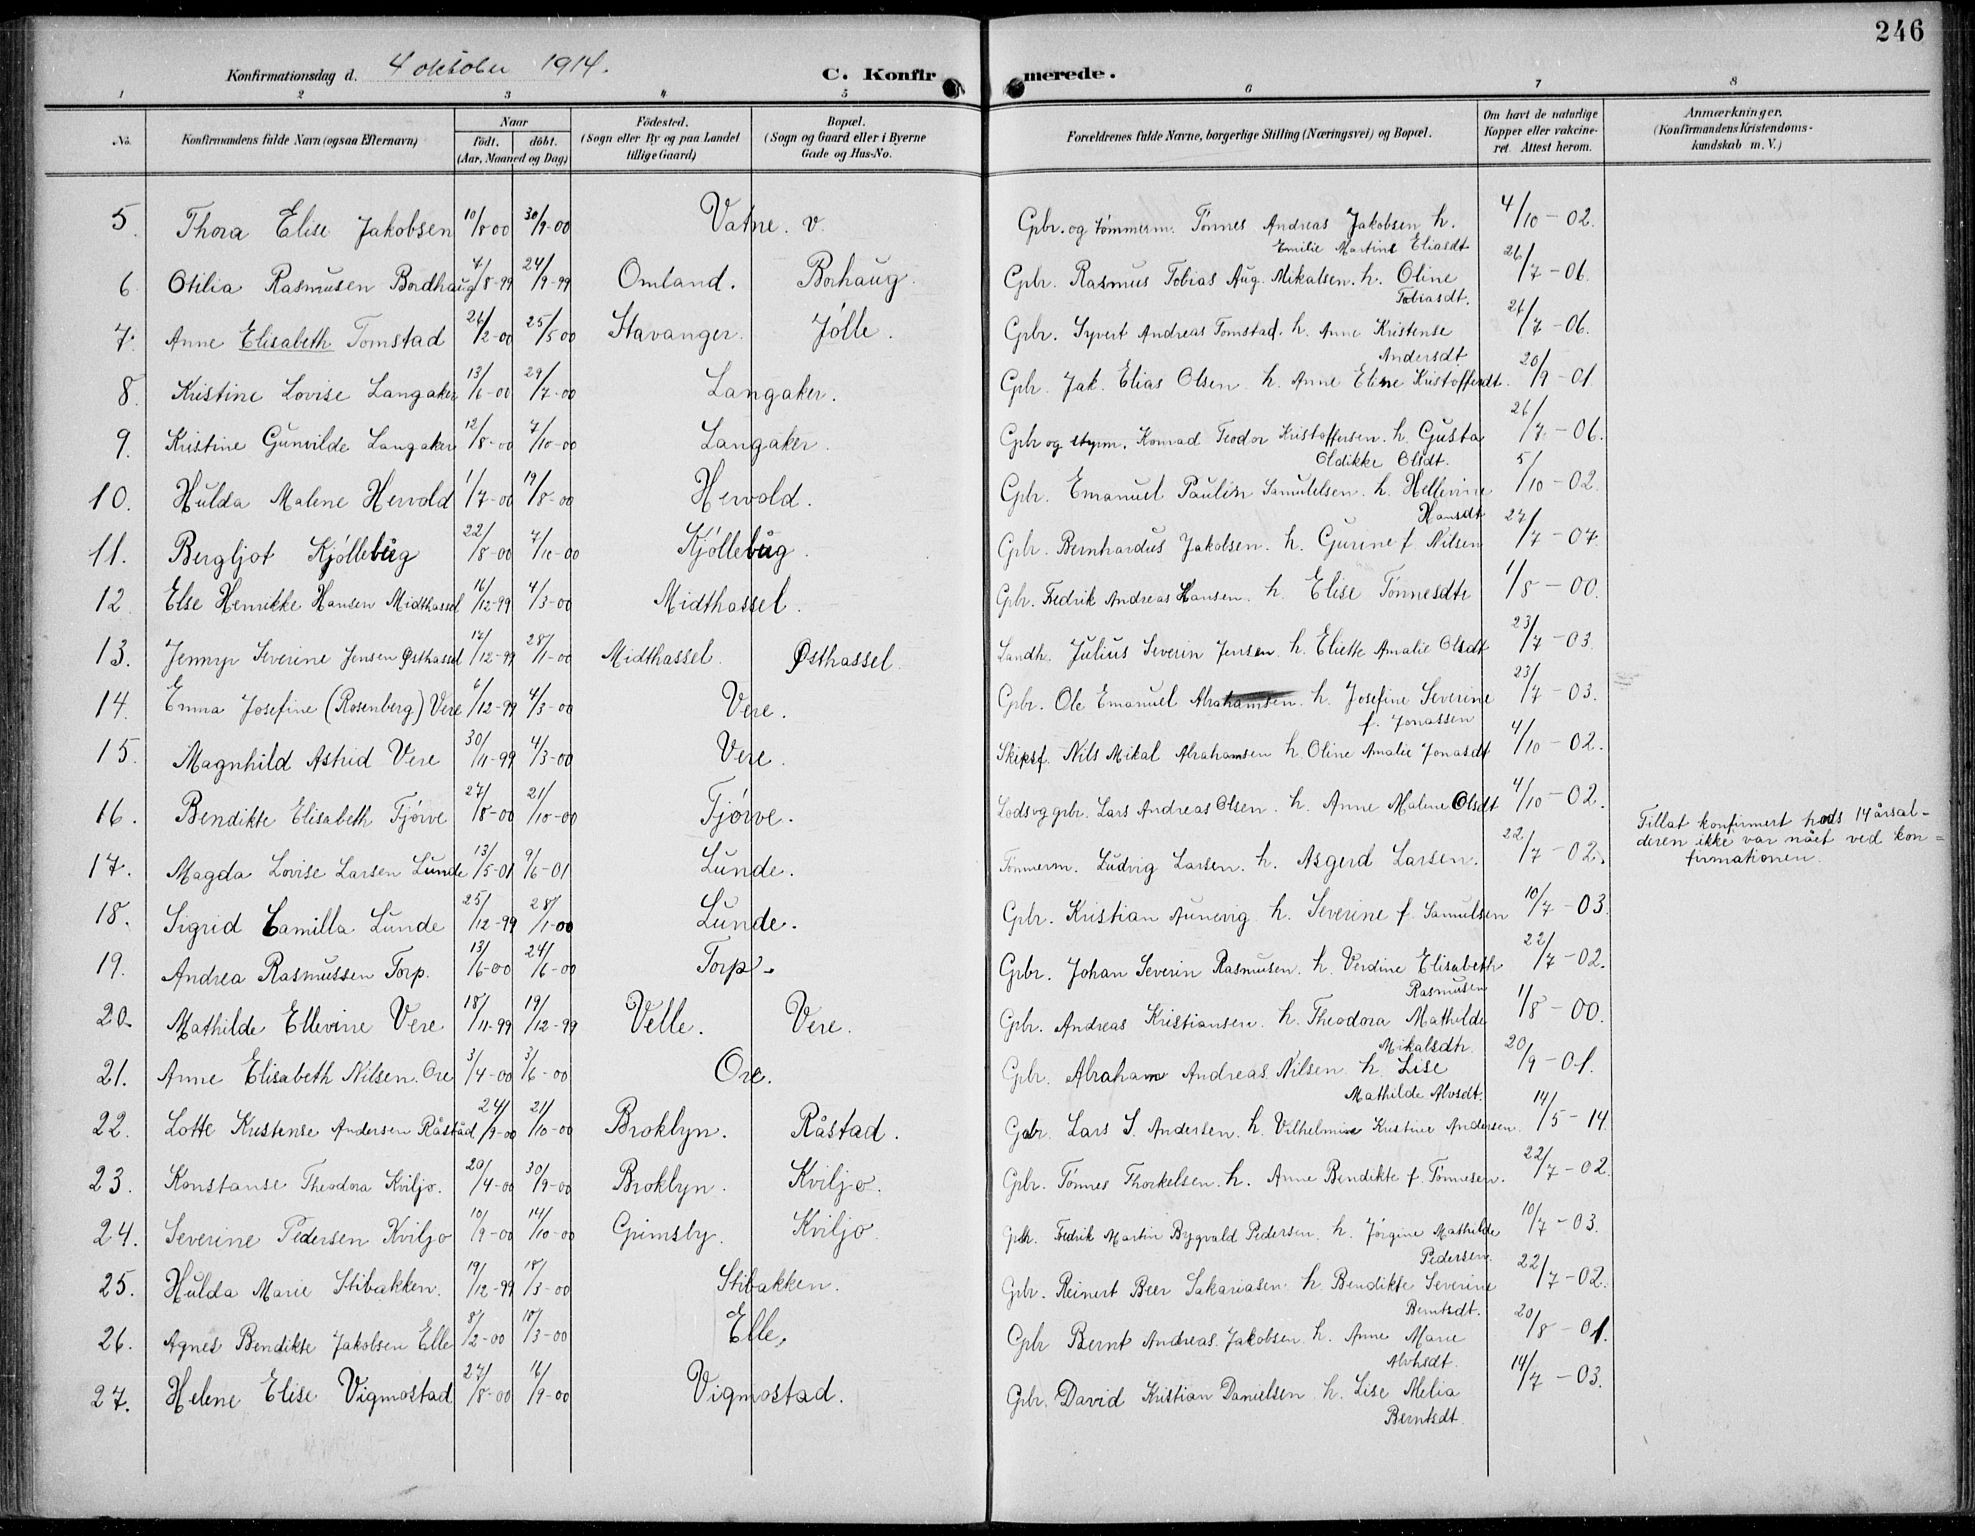 246
Konfirmationsdag d. 4 oktober 1914. C. Konfirmerede.
1 2 3 4 5 6 7 8
No. Konfirmandens fulde Navn (ogsaa Efternavn) Naar født. døbt. (Aar, Maaned og Dag) Fødested. (Sogn eller By og paa Landet tillige Gaard) Bopæl. (Sogn og Gaard eller i Byerne Gade og Hus-No. Forældrenes fulde Navne, borgerlige Stilling (Næringsvei) og Bopæl. Om havt de naturlige Kopper eller vakcineret. Attest herom. Anmærkninger. (Konfirmandens Kristendomskundskab m. V.)
5. Thora Elise Jakobsen 10/8 00 30/9-00 Vatne. v. Gbr. og tømmerm. Tønnes Andreas Jakobsen h. 4/10-02.
Emilie Martine Eliasdt
6. Otilia Rasmusen Bordhaug 4/8-99 24/9-99 Omland. Borhaug. Gbr. Rasmus Tobias Aug. Mikalsen. h. Oline 26/7-06.
Tobiasdt.
7. Anne Elisabeth Tomstad 26/2-00 25/5 00 Stavanger. Jølle. Gbr. Syvert Andreas Tomstad. h. Anne Kristense 26/7-06.
Andersdt
8. Kristine Lovise Langaker 13/6-00 29/7-00 Langaker. Gbr. Jak. Elias Olsen. h. Anne Eline Kristoffersdt. 20/9-01
9. Kristine Gunvilde Langaker 12/8-00 7/10-00 Langaker. Gbr og styrm. Konrad Teodor Kristoffersen. h. Gusta 26/7-06.
Oldikke Olsdt.
10. Hulda Malene Hervold 1/7-00 19/8-00 Hervold. Gbr. Emanuel Paulin Samuelsen. h. Hellevine 5/10-02.
Hansdt
11. Bergljot Kjøllebug 22/8-00 7/10-00 Kjøllebug. Gbr. Bernhardus Jakobsen. h. Gurine f. Nilsen 27/7-07.
12. Else Henrikke Hansen Midthassel 16/12-99 4/3-00 Midthassel. Gbr. Fredrik Andreas Hansen. h. Elise Tønnesdtr 1/8-00.
13. Jenny Severine Jensen Østhassel 17/12-99 28/1-00 Midthassel. Østhassel. Landh. Julius Severin Jensen h. Eliette Amalie Olsdt 23/7-03.
14. Emma Josefine (Rosenberg) Vere 6/12-99 4/3-00 Vere. Gbr. Ole Emanuel Abrahamsen. h. Josefine Severine 23/7-03.
f. Jonassen
15. Magnhild Astrid Vere 30/11-99 4/3-00 Vere. Skipsf. Nils Mikal Abrahamsen h. Oline Amalie Jonasdt 4/10-02.
16. Bendikte Elisabeth Tjørve 27/8-00 21/10-00 Tjørve. Lods og gbr. Lars Andreas Olsen. h. Anne Malene Olsdt 4/10-02.
17. Magda Lovise Larsen Lunde 13/5-01 9/6-01 Lunde. Tømmerm. Ludvig Larsen. h. Asgerd Larsen. 22/7-02. Tillat konfirmert hvis 14 årsal-
deren ikke var nået ved kon=
firmationen.
18. Sigrid Camilla Lunde 25/12-99 28/1-00 Lunde. Gbr. Kristian Aunevig h. Severine f. Samulsen 10/7-03.
19. Andrea Rasmussen Torp. 13/6-00 24/6-00 Torp. Gbr. Johan Severin Rasmusen. h. Verdine Elisabeth 22/7-02.
Rasmusen
20. Mathilde Ellevine Vere 18/11-99 19/12-99 Velle. Vere. Gbr. Andreas Kristiansen. h. Theodora Mathilde 1/8-00.
Mikalsdtr.
21. Anne Elisabeth Nilsen. Ore 3/4-00 3/6-00 Ore. Gbr. Abraham Andreas Nilsen h. Lise 20/9-01.
Mathilde Alvsdt.
22. Lotte Kristense Andersen Råstad 24/9-00 21/10-00 Broklyn. Råstad. Gbr. Lars S. Andersen. h. Vilhelmine Kristine Andersen. 14/5-14
23. Konstanse Theodora Kviljo. 20/4-00 30/9-00 Broklyn. Kviljo. Gbr. Tønnes Thorkelsen. h. Anne Bendikte f. Tønnesen. 22/7-02.
24. Severine Pedersen Kviljo 10/9-00 14/10-00 Grimsby. Kviljo. Gbr. Fredrik Martin Bygvald Pedersen. h. Jørgine Mathilde 10/7-03.
Pedersen.
25. Hulda Marie Stibakken. 19/12-99 18/3-00 Stibakken. Gbr. Reinert Beer Sakariasen. h. Bendikte Severine 22/7-02.
Berntsdt.
26. Agnes Bendikte Jakobsen Elle 8/2-00 18/3-00 Elle. Gbr Bernt Andreas. Jakobsen. h. Anne Marie 20/8-01.
Alvhsdt.
27. Helene Elise Vigmostad 27/8-00 16/9-00 Vigmostad. Gbr. David Kristian Danielsen h. Lise Melia 14/7-03.
Berntsdt.